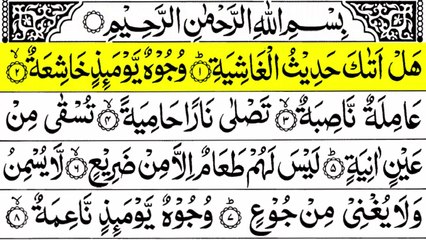 بِسْمِ اللهِ الرَّحْمٰنِ الرَّحِيْمِ
هَلْ اَتٰىكَ حَدِيْثُ الْغَاشِيَةِ ۟ؕ۱ وُجُوْهٌ يَّوْمَىِٕذٍ خَاشِعَةٌ ۟ۙ۲
عَامِلَةٌ نَّاصِبَةٌ ۟ۙ۳ تَصْلٰى نَارًا حَامِيَةً ۟ۙ۴ تُسْقٰى مِنْ
عَيْنٍ اٰنِيَةٍ ۟ؕ۵ لَيْسَ لَهُمْ طَعَامٌ اِلَّا مِنْ ضَرِيْعٍ ۟ۙ۶ لَّا يُسْمِنُ
وَلَا يُغْنِىْ مِنْ جُوْعٍ ۟ؕ۷ وُجُوْهٌ يَّوْمَىِٕذٍ نَّاعِمَةٌ ۟ۙ۸